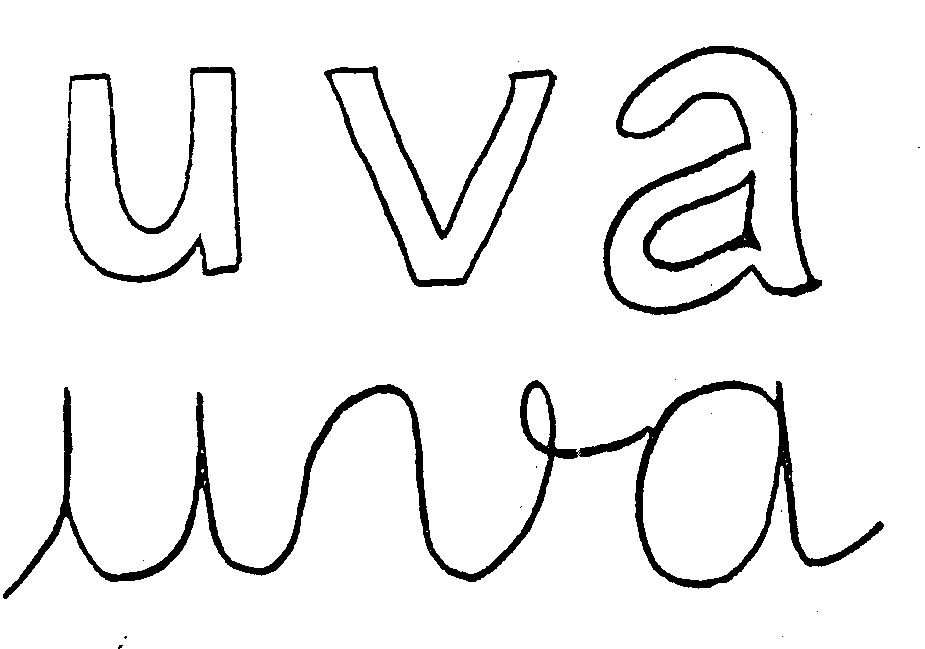 uva
uva